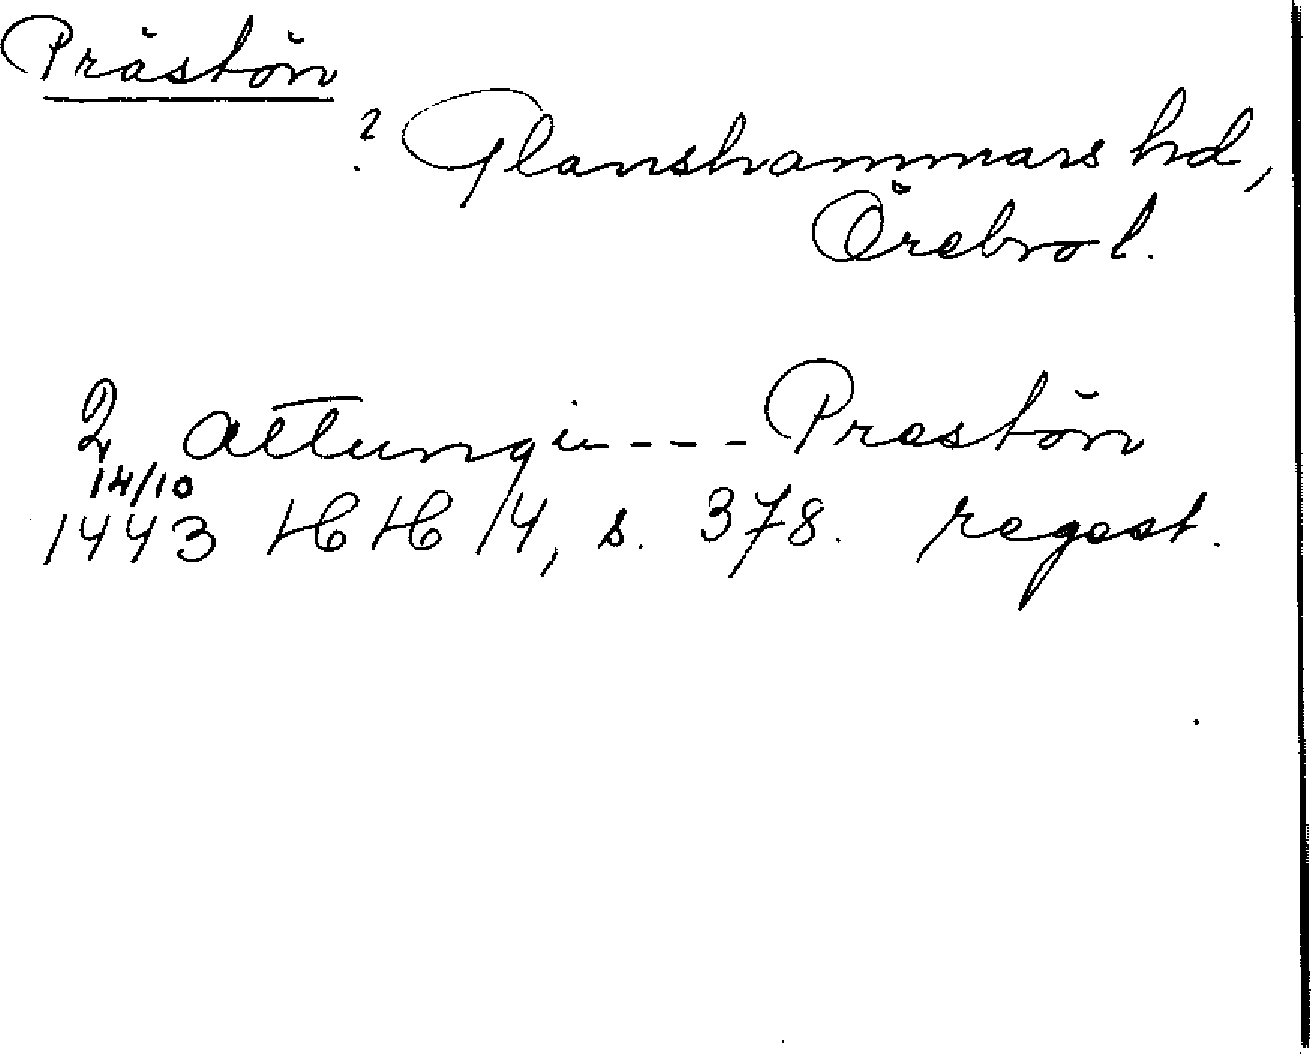 Prästön
? Glanshammars hd,
Örebro l.
2 attungin --- Prestön
14/10
1443 HH 14, s. 378. regest.